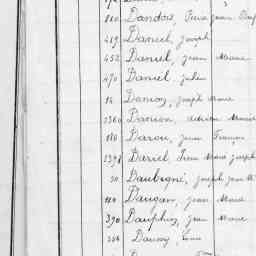 810 Dandois, Pierre Jean
419 Daniel, Joseph
452 Daniel, Jean Marie
470 Daniel, Julien
14 Danion, Joseph Marie
1360 Danion, Adrien
180 Darou, Jean François
1398 Dariel, Pierre Marie Joseph
50 Daubigné, Joseph
110 Daugan, Jean Marie
390 Dauphin, Jean Marie
Dauny